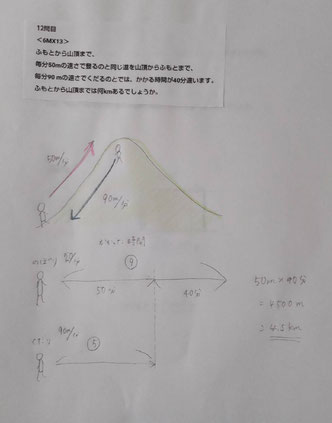 12問目
＜6MX13＞
ふもとから山頂まで、
毎分50mの速さで登るのと同じ道を山頂からふもとまで、
毎分90 mの速さでくだるのとでは、かかる時間が40分違います。
ふもとから山頂までは何kmあるでしょうか。
50m/分
90m/分
時間
のぼり
⑨
50分
40分
50m × 90分
= 4500m
= 4.5km
くだり
90m/分
⑤